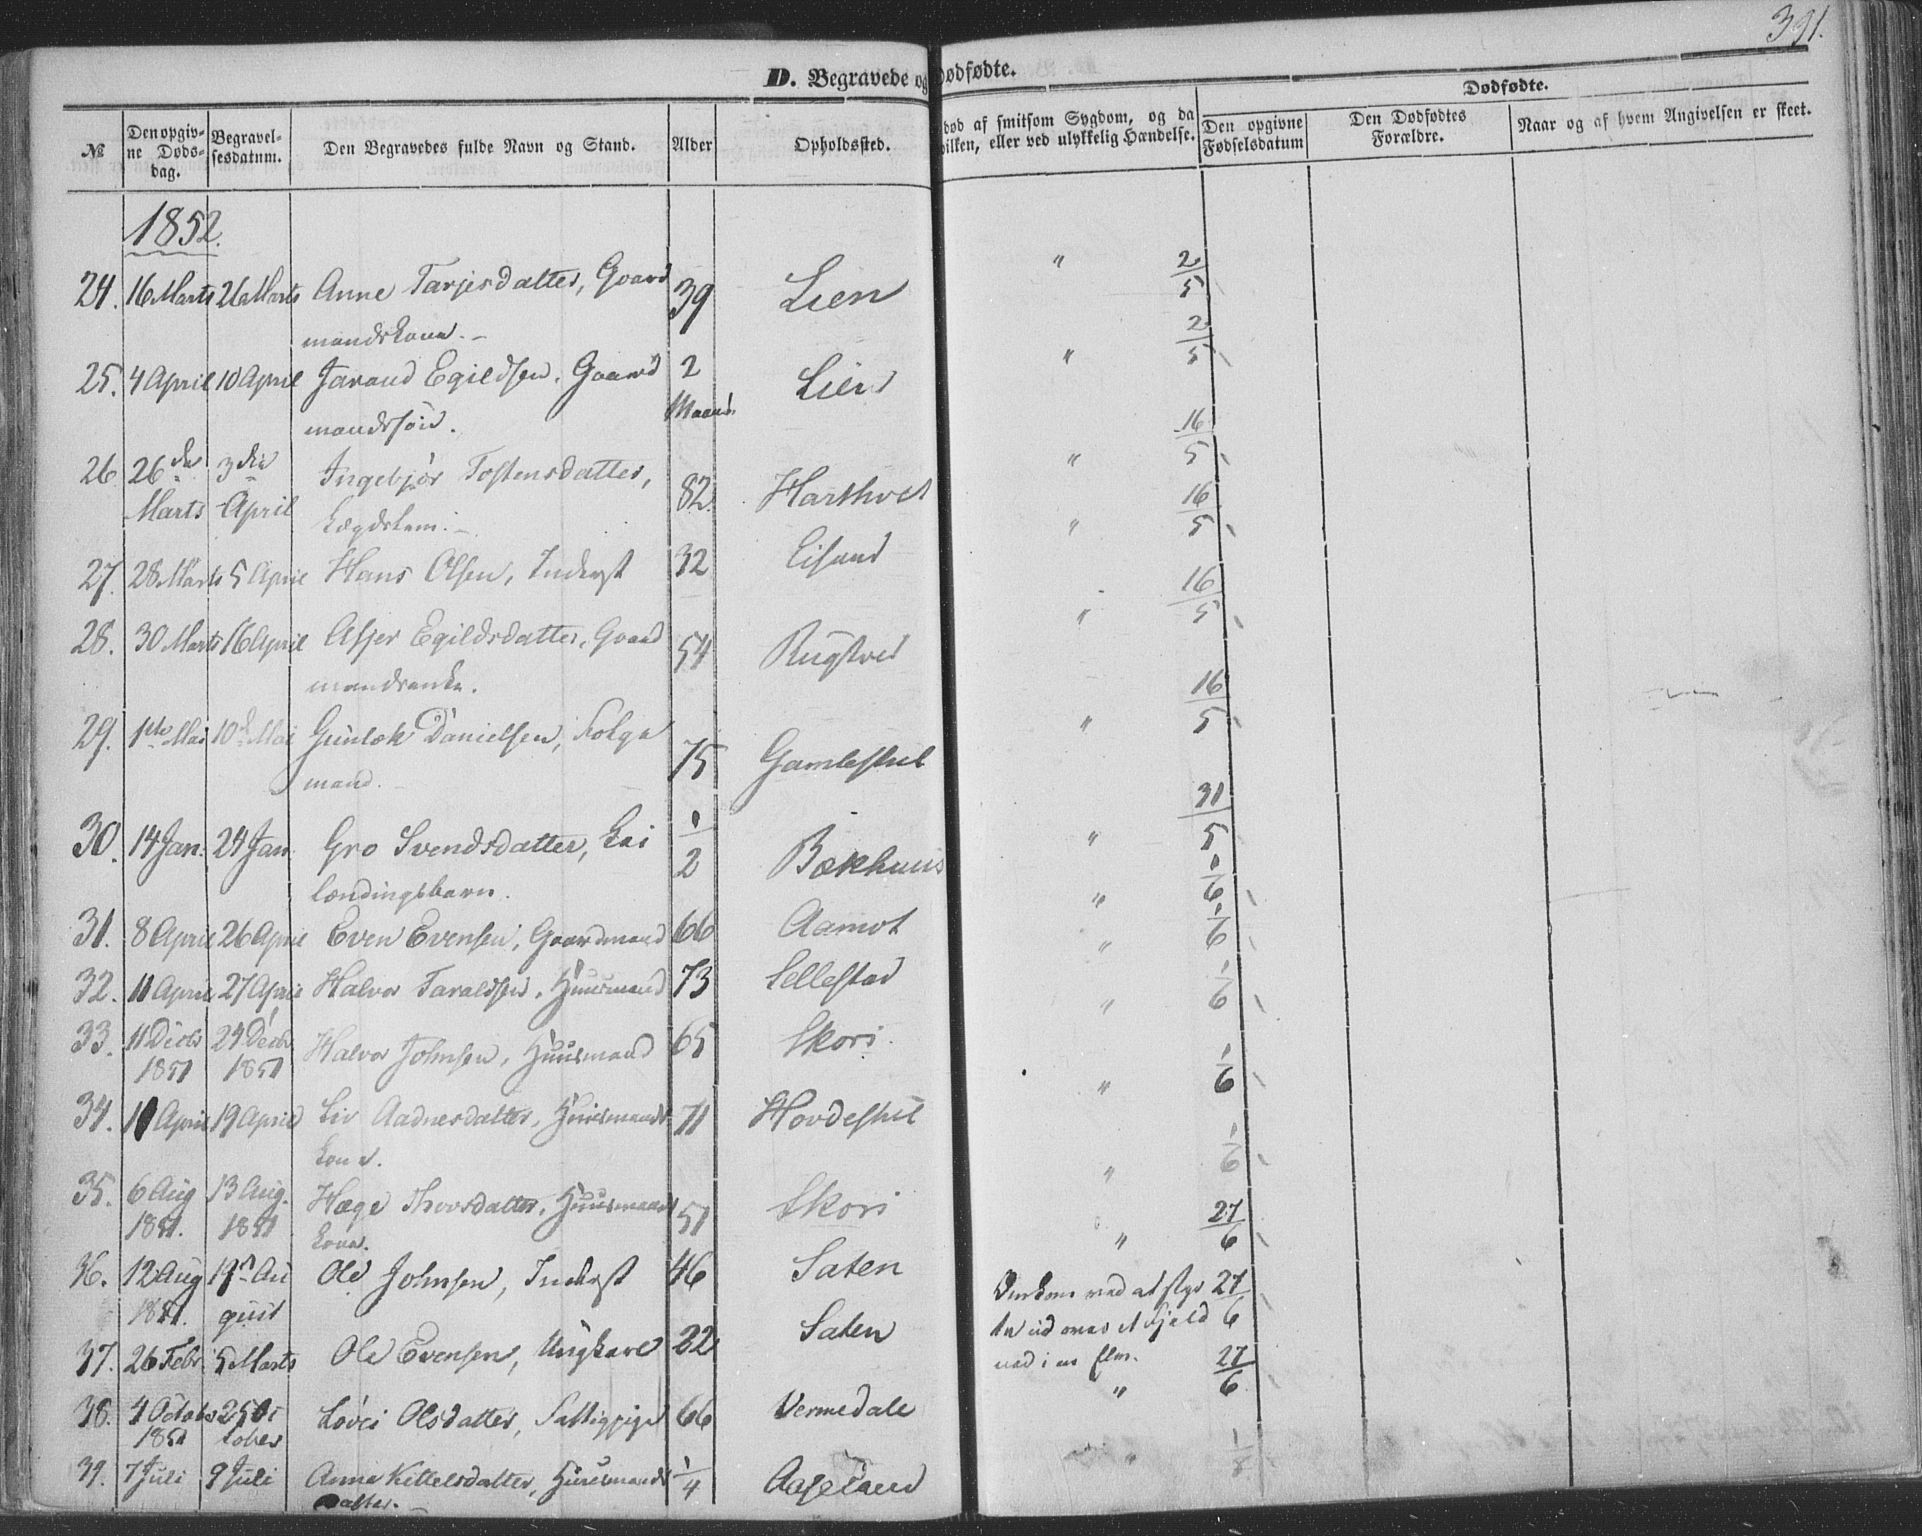 391.
D. Begravede og Dødfødte.
№
Den opgivne Døds-dag.
Begravelsesdatum.
Den Begravedes fulde Navn og Stand.
Alder
Opholdssted.
død af smitsom Sygdom, og da
hvilken, eller ved ulykkelig Hændelse.
Dødfødte.
Den opgivne Fødselsdatum
Den Dødfødtes Forældre.
Naar og af hvem Angivelsen er skeet.
1852.
24. 16 Marts 26 Marts Anne Tarjesdatter, Gaard 39 Lien " 2/5
mandskone.
25. 4 April 10 April Jaraand Egildsen, Gaard 2 Lien " 2/5
mandssøn. Maaned.
26 26de 3die Ingebjør Tostensdatter, 82 Harthvet " 16/5
Marts April Lægdslem.
27. 28 Marts 5 April Hans Olsen, Inderst 32 Eisand " 16/5
28. 30 Marts 16 April Asjer Egildsdatter, Gaard 54 Rugtved " 16/5
mandsenke.
29. 1ste Mai 10de Mai Gunlek Danielsen, Folga 75 Gamlestul " 16/5
mand.
30. 14 Jan. 24 Jan. Gro Svendsdatter, Lei 1/2 Bækhuus " 31/5
lændingsbarn.
31. 8 April 26 April Even Evensen, Gaardmand 66 Aamot " 1/6
32. 11 April 27 April Halvor Taraldsen, Huusmand 73 Sellestad " 1/6
33. 11 Decbr 24 Decbr Halvor Johnsen, Huusmand 65 Skori " 1/6
1851 1851
34. 10 April 19 April Liv Aadnesdatter, Huusmands 71 Hovdestul " 1/6
kone.
35. 6 Aug 13 Aug. Hæge Thorsdatter, Huusmands 51 Skori " 1/6
1851. 1851 kone.
36. 12 Aug 19de Au Ole Johnsen, Inderst 46 Saten " 27/6
1851. gust
37. 26 Febr. 5 Marts Ole Evensen, Ungkarl 22 Saten Omkom ved at styr 27/6
te ud over et Fjeld
ned i en Elv.
38. 4 October 25 Oc Lovei Olsdatter, Fattigpige 66 Vermedale " 27/6
1851 tober
39. 7 Juli 9 Juli Anne Kittelsdatter, Huusmands 1/4 "
datter.